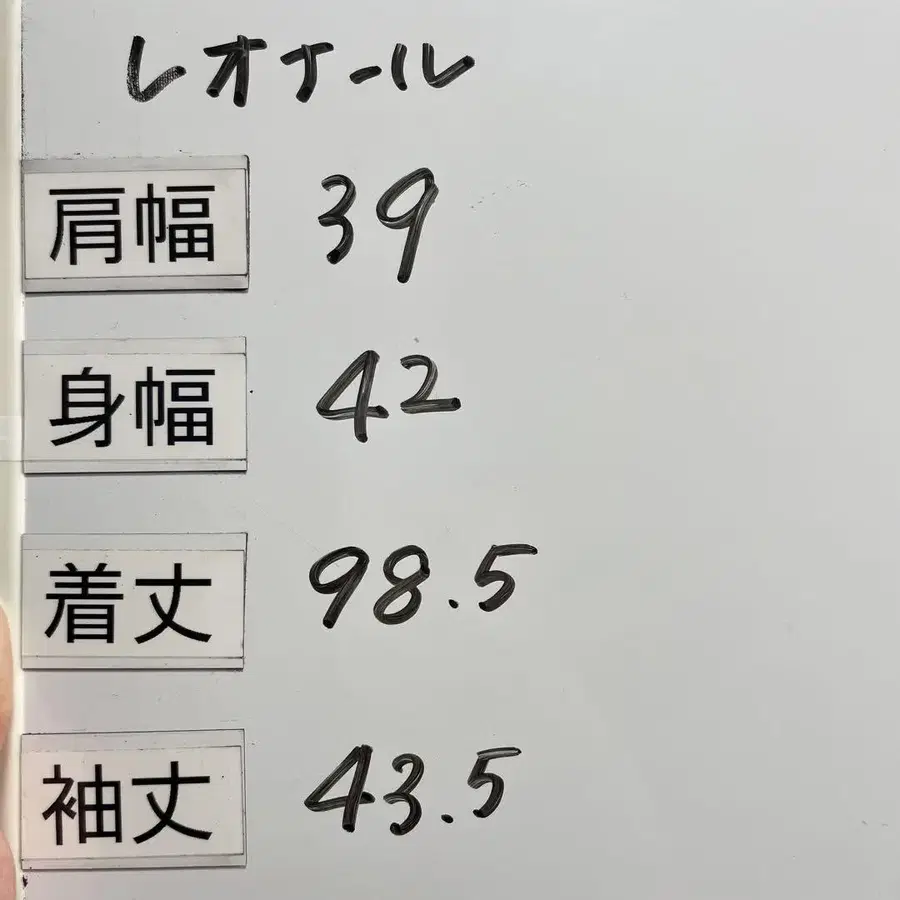 レオナール
肩幅 39
身幅 42
着丈 98.5
袖丈 43.5